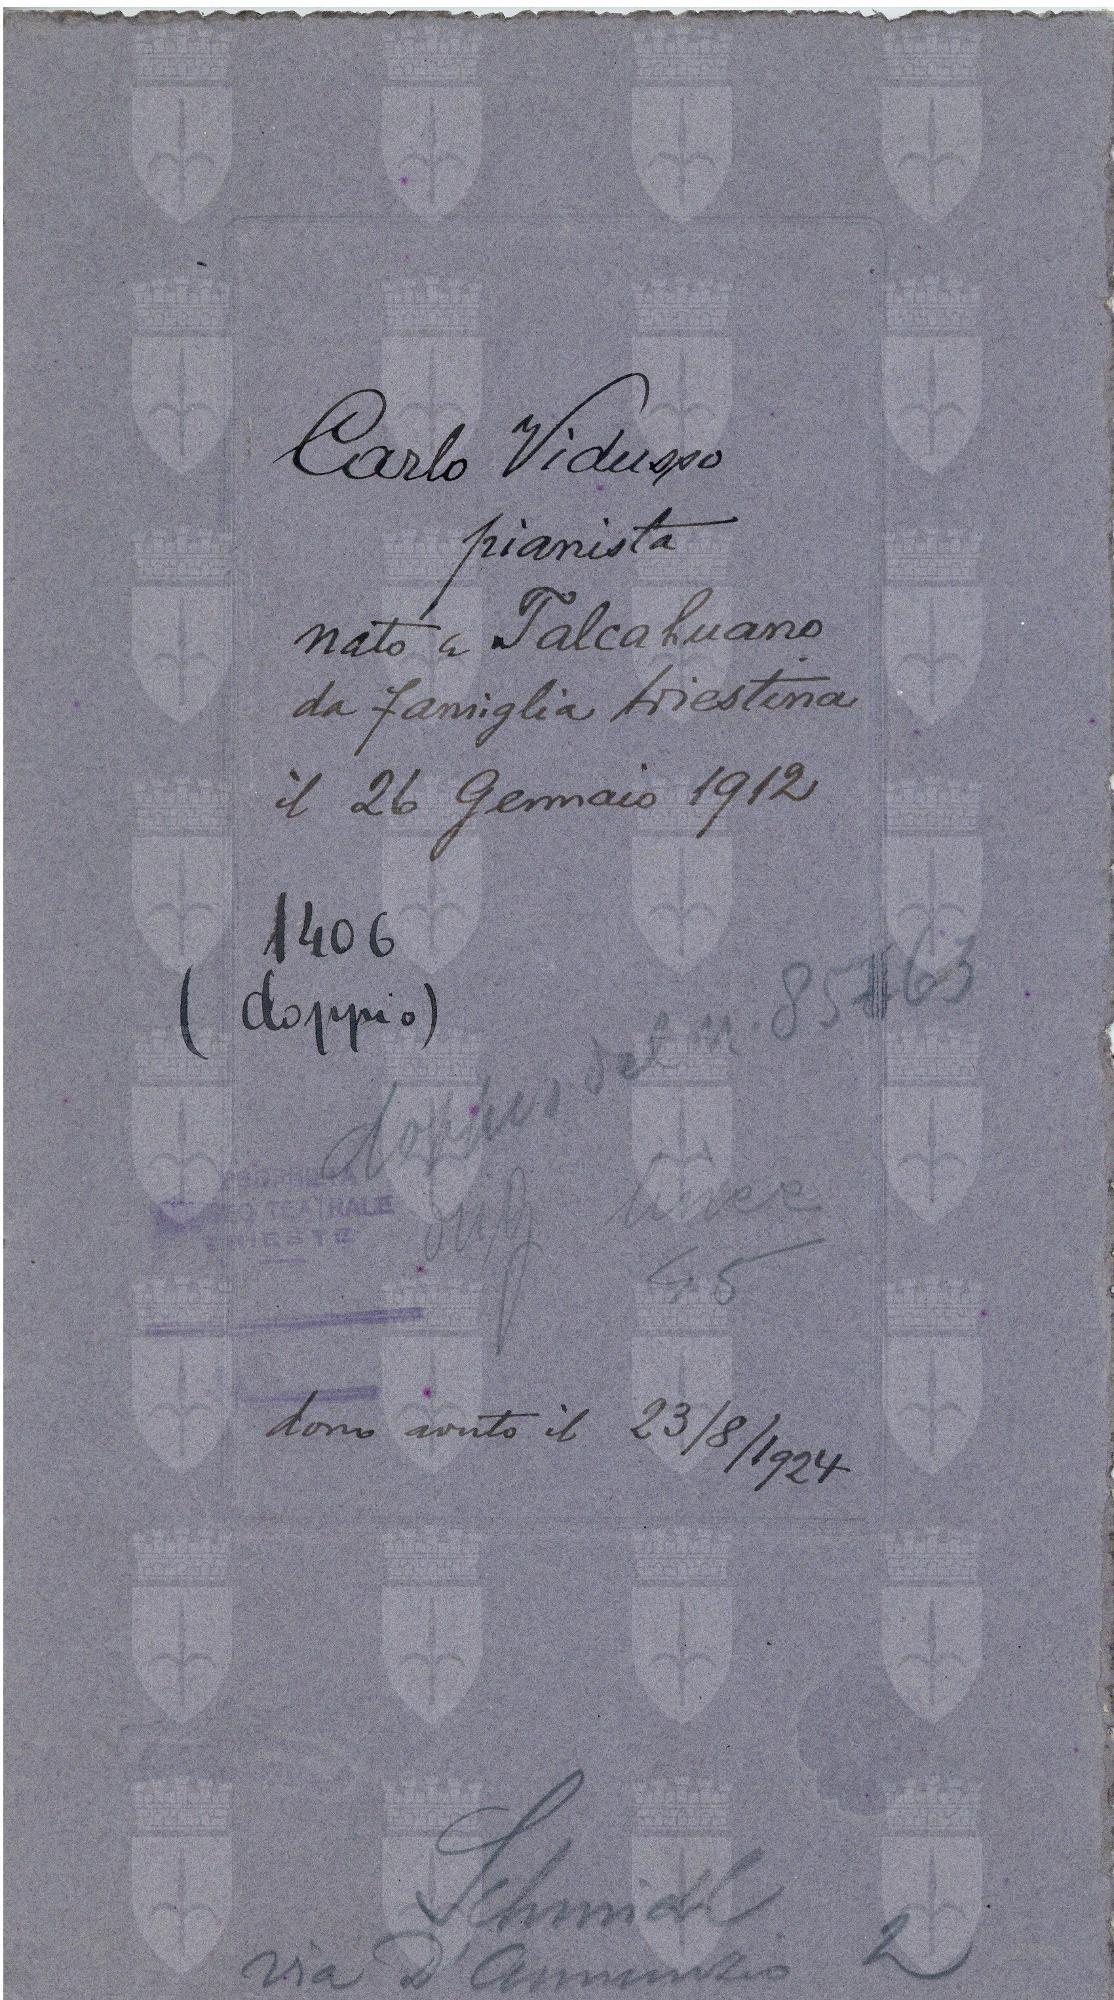 Carlo Vidusso
pianista
nato a Talcahuano
da famiglia triestina
il 26 Gennaio 1912
1406
(doppio)
doppio del n. 85763
TEATRALE
TRIESTE
45
dono avuto il 23/8/1924
Schmidl
via D'Annunzio 2